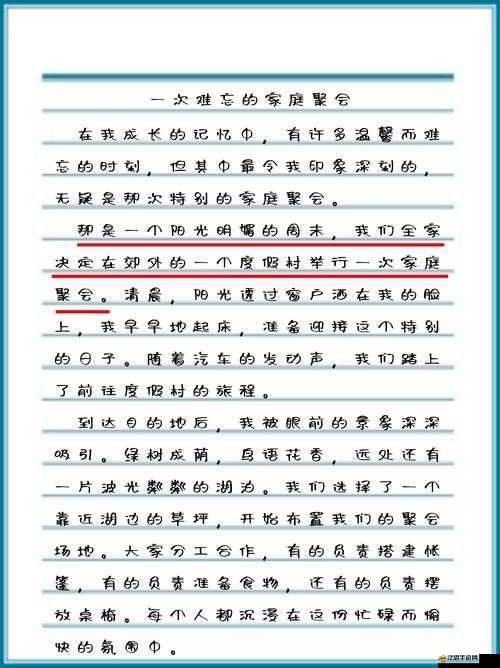 一次难忘的家庭聚会
在我成长的记忆中，有许多温馨而难
忘的时刻，但其中最令我印象深刻的，
无疑是那次特别的家庭聚会。
那是一个阳光明媚的周末，我们全家
决定在郊外的一个度假村举行一次家庭
聚会。清晨，阳光透过窗户洒在我的脸
上，我早早地起床，准备迎接这个特别
的日子。随着汽车的发动声，我们踏上
了前往度假村的旅程。
到达目的地后，我被眼前的景象深深
吸引。绿树成荫，鸟语花香，远处还有
一片波光粼粼的湖泊。我们选择了一个
靠近湖边的草坪，开始布置我们的聚会
场地。大家分工合作，有的负责搭建帐
篷，有的负责准备食物，还有的负责摆
放桌椅。每个人都沉浸在这份忙碌而愉
快的氛围中。